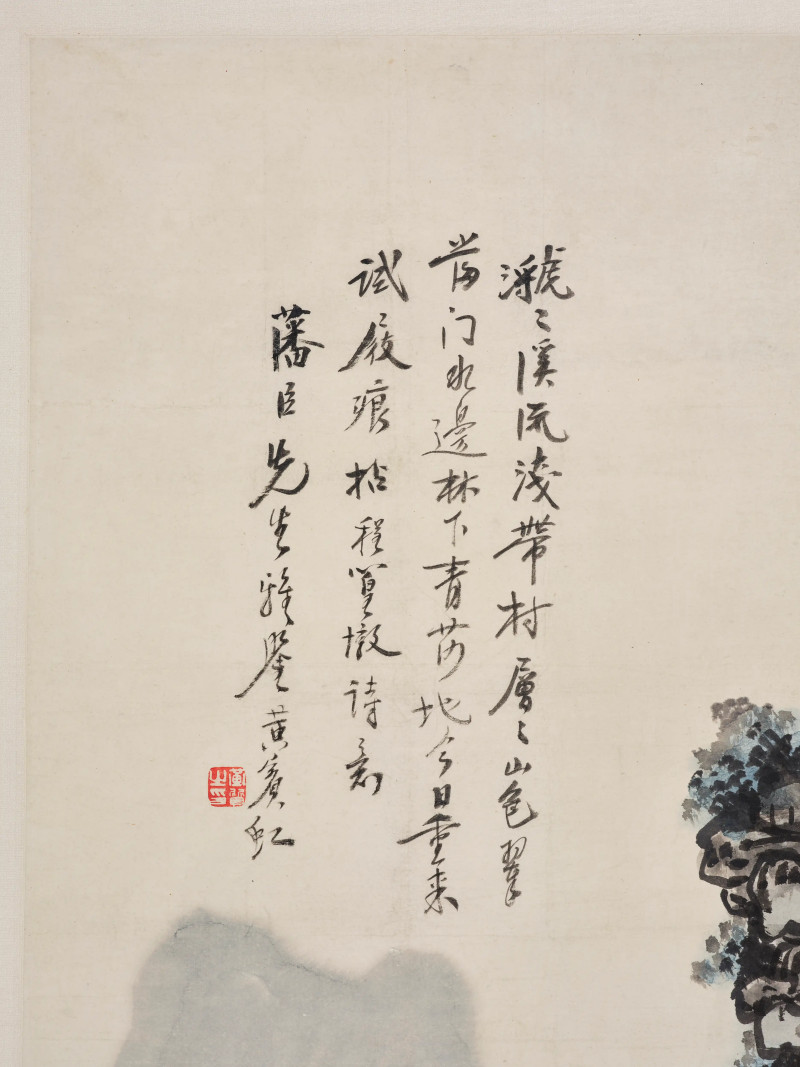 㶁〻溪流淺帶村層〻山色翠
當门水邊林下青莎地今日重来
試屐痕拈程篁墩詩意
藩臣先生雅鑒黃賓虹
黃質之印